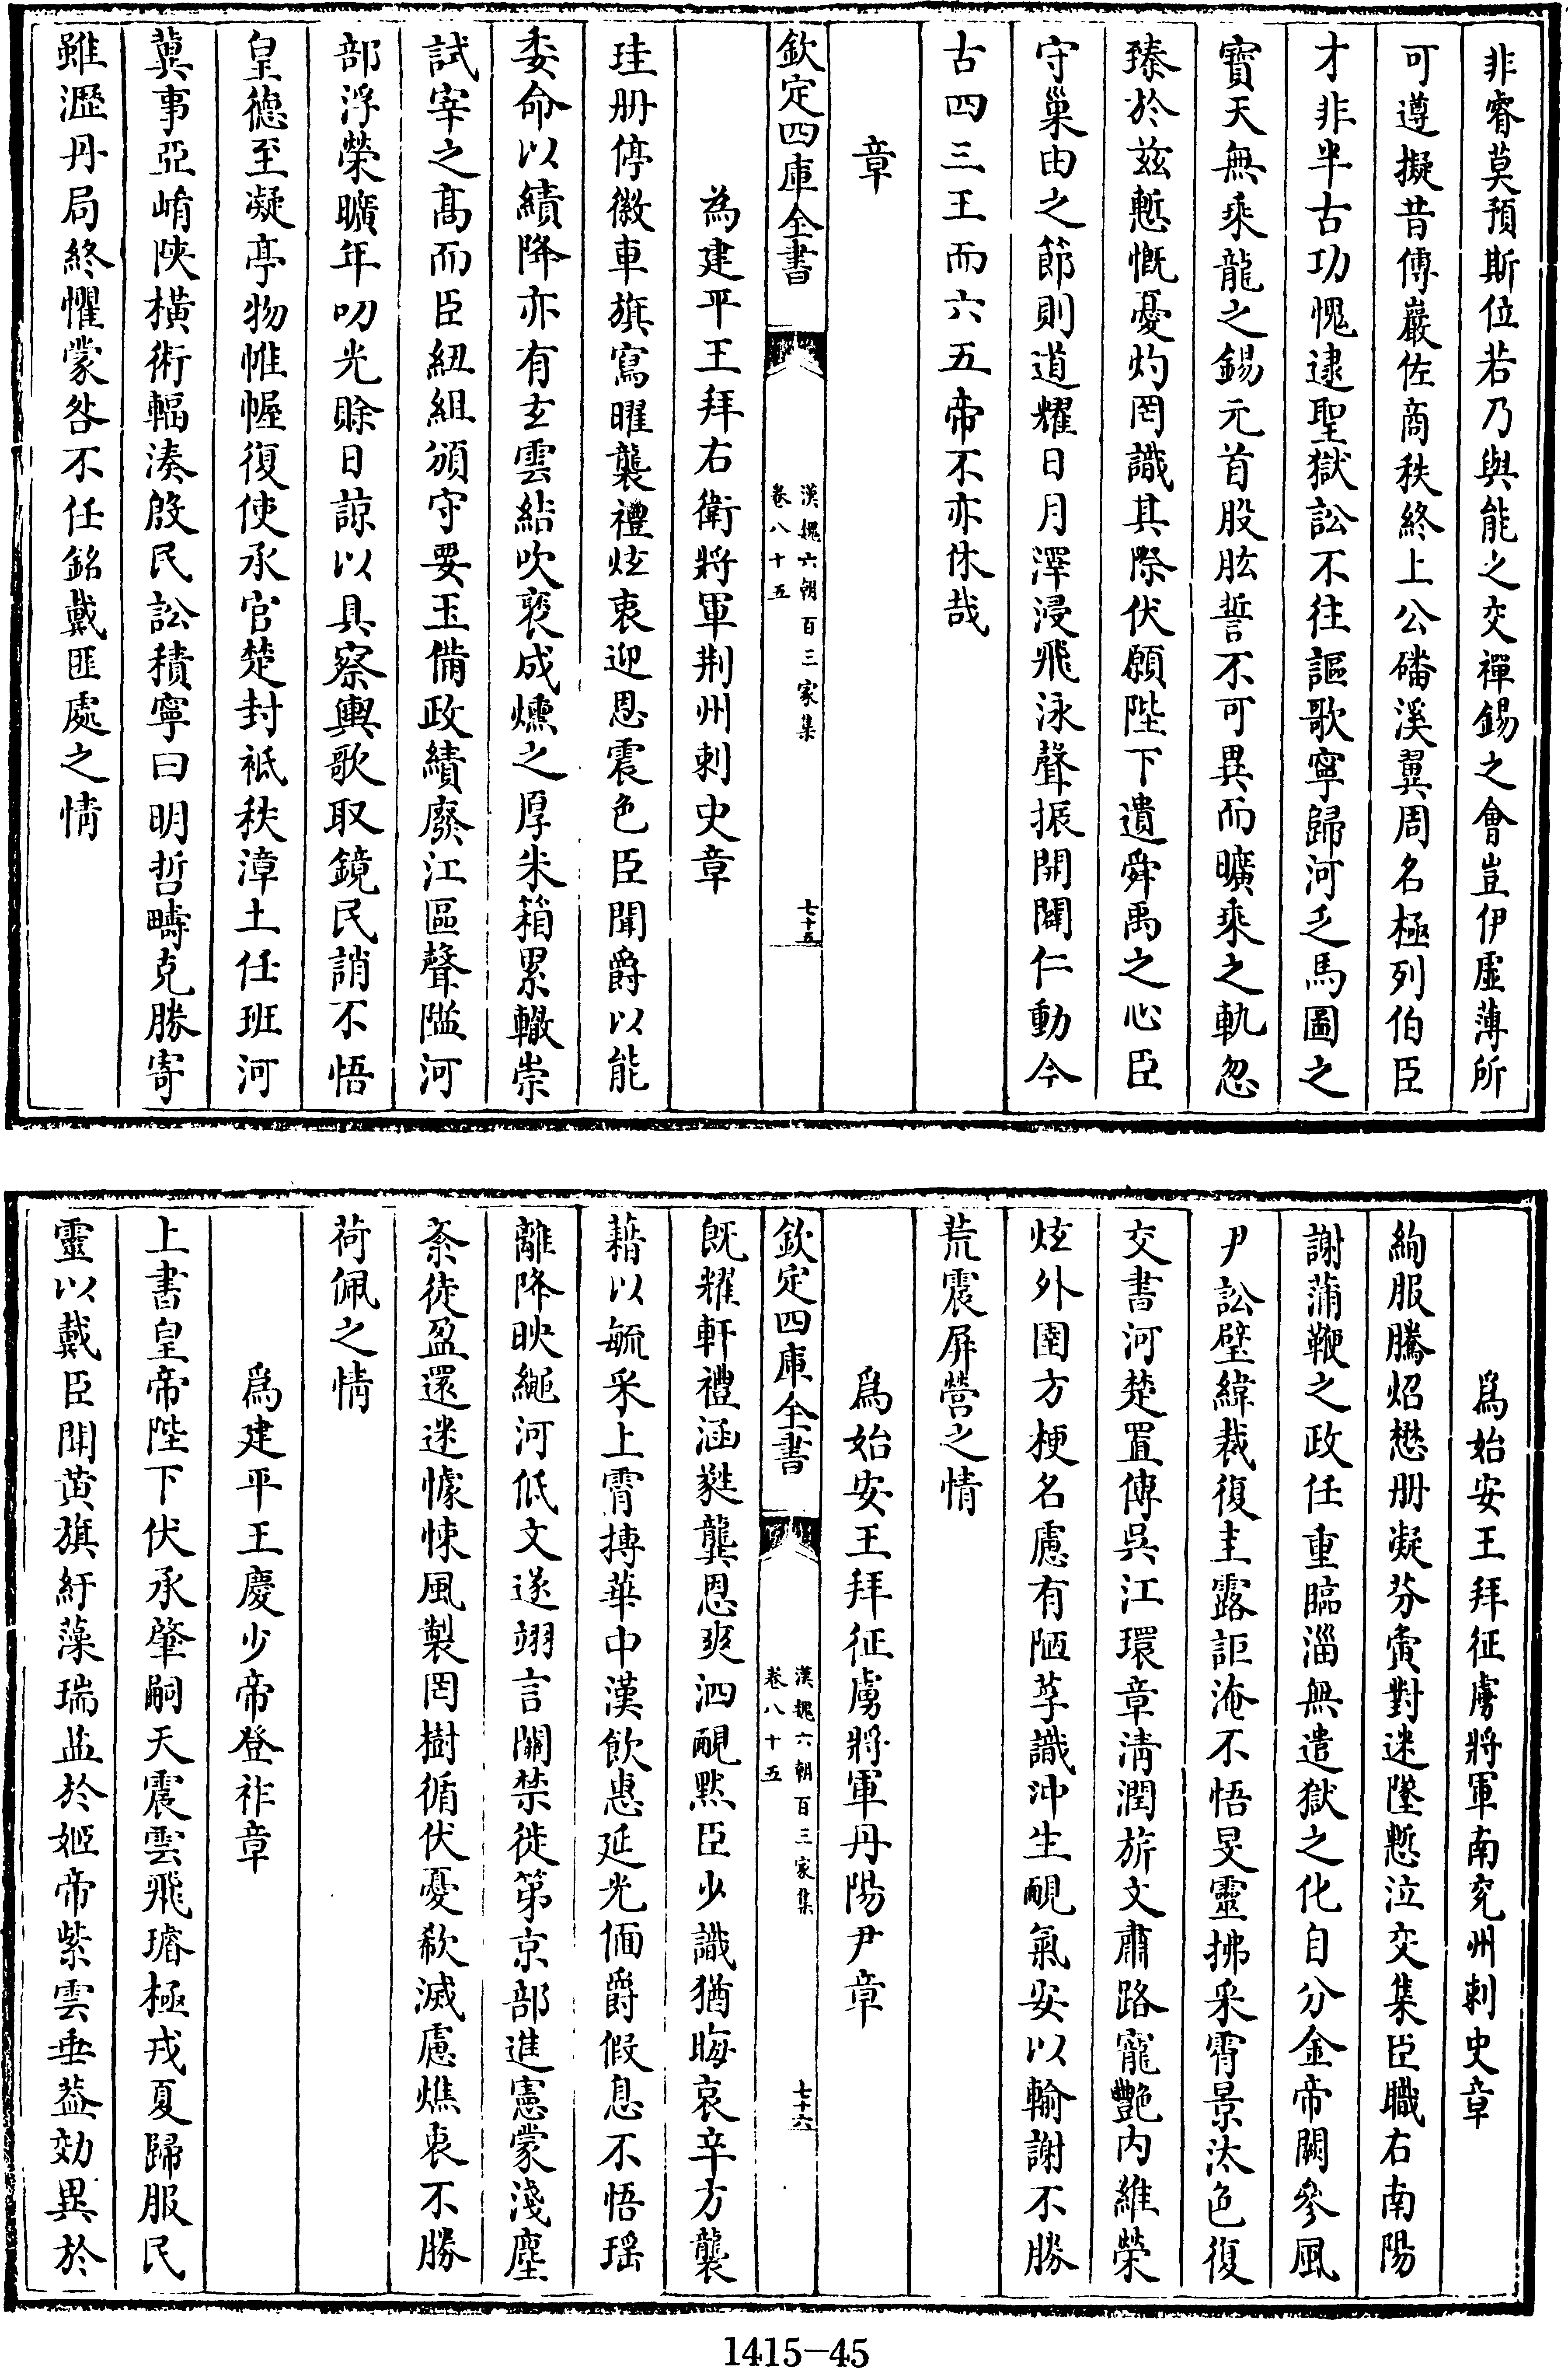 非睿莫預斯位若乃與能之交禪錫之會豈伊虛薄所
可遵擬昔傅巖佐商秩終上公磻溪翼周名極列伯臣
才非半古功愧逮聖獄訟不往謳歌寧歸河乏馬圖之
寶天無乘龍之錫元首股肱誓不可異而曠乘之軌忽
臻於茲慙慨憂灼罔識其際伏願陛下遺舜禹之心臣
守巢由之節則道耀日月澤浸飛泳聲振開闢仁動今
古四三王而六五帝不亦休哉
章
欽定四庫全書
漢魏六朝百三家集
卷八十五
七十五
為建平王拜右衛將軍荆州刺史章
珪册停徽車旗寫曜襲禮炫衷迎恩震色臣聞爵以能
委命以績降亦有玄雲結吹裒成燻之厚朱箱累轍崇
試宰之髙而臣紐組頒守要玉備政績廢江區聲隘河
部浮榮曠年叨光賒日諒以具察輿歌取鏡民誚不悟
皇德至凝亭物惟幄復使承官楚封祗秩漳土任班河
冀事亞崤陜橫術輻湊殷民訟積寧曰明哲疇克勝寄
雖瀝丹局終懼蒙咎不任銘戴匪處之情
爲始安王拜征虜將軍南兖州刺史章
絢服騰炤懋册凝芬夤對迷墜慙泣交集臣職右南陽
謝蒲鞭之政任重臨淄無遣獄之化自分金帝闕參風
尹訟壁緯裁復圭露詎淹不悟旻靈拂采霄景汰色復
交書河楚置傳吳江環章淸潤旂文肅路寵艷内維榮
炫外圉方梗名慮有陋莩識沖生靦氣安以輸謝不勝
荒震屏營之情
爲始安王拜征虜將軍丹陽尹章
欽定四庫全書
漢魏六朝百三家集
卷八十五
七十六
既耀軒禮涵毵龔恩爽泗靦黙臣少識猶晦哀辛方襲
藉以毓采上霄摶華中漢飲惠延光偭爵假息不悟瑶
離降映繩河低文遂翊言關禁徙第京部進憲蒙淺塵
紊徒盈還迷懅悚風製罔樹循伏憂欷滅慮燋衷不勝
荷佩之情
爲建平王慶少帝登祚章
上書皇帝陛下伏承肇嗣天震雲飛璿極戎夏歸服民
靈以戴臣聞黄旗紆藻瑞盂於姬帝紫雲垂葢効異於
1415-45